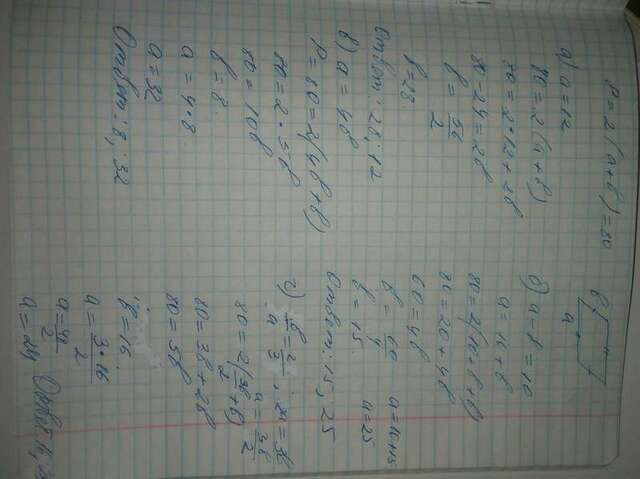 P=2(a+b)=80
b
a
а) a=12
80=2(a+b)
80=2·12+2b
80-24=2b
b=56/2
b=28
Ответ: 28; 12
в) a=4b
P=80=2(4b+b)
80=2·5b
80=10b
b=8.
a=4·8
a=32
Ответ: 8, 32
б) a-b=10
a=10+b
80=2(10+b+b)
80=20+4b
60=4b
b=60/4
a=10+15
b=15.
a=25
Ответ: 15, 25
г) b/a=2/3
a=3b/2
80=2(3b/2+b)
80=3b+2b
80=5b
b=16
a=3·16/2
a=24
Ответ